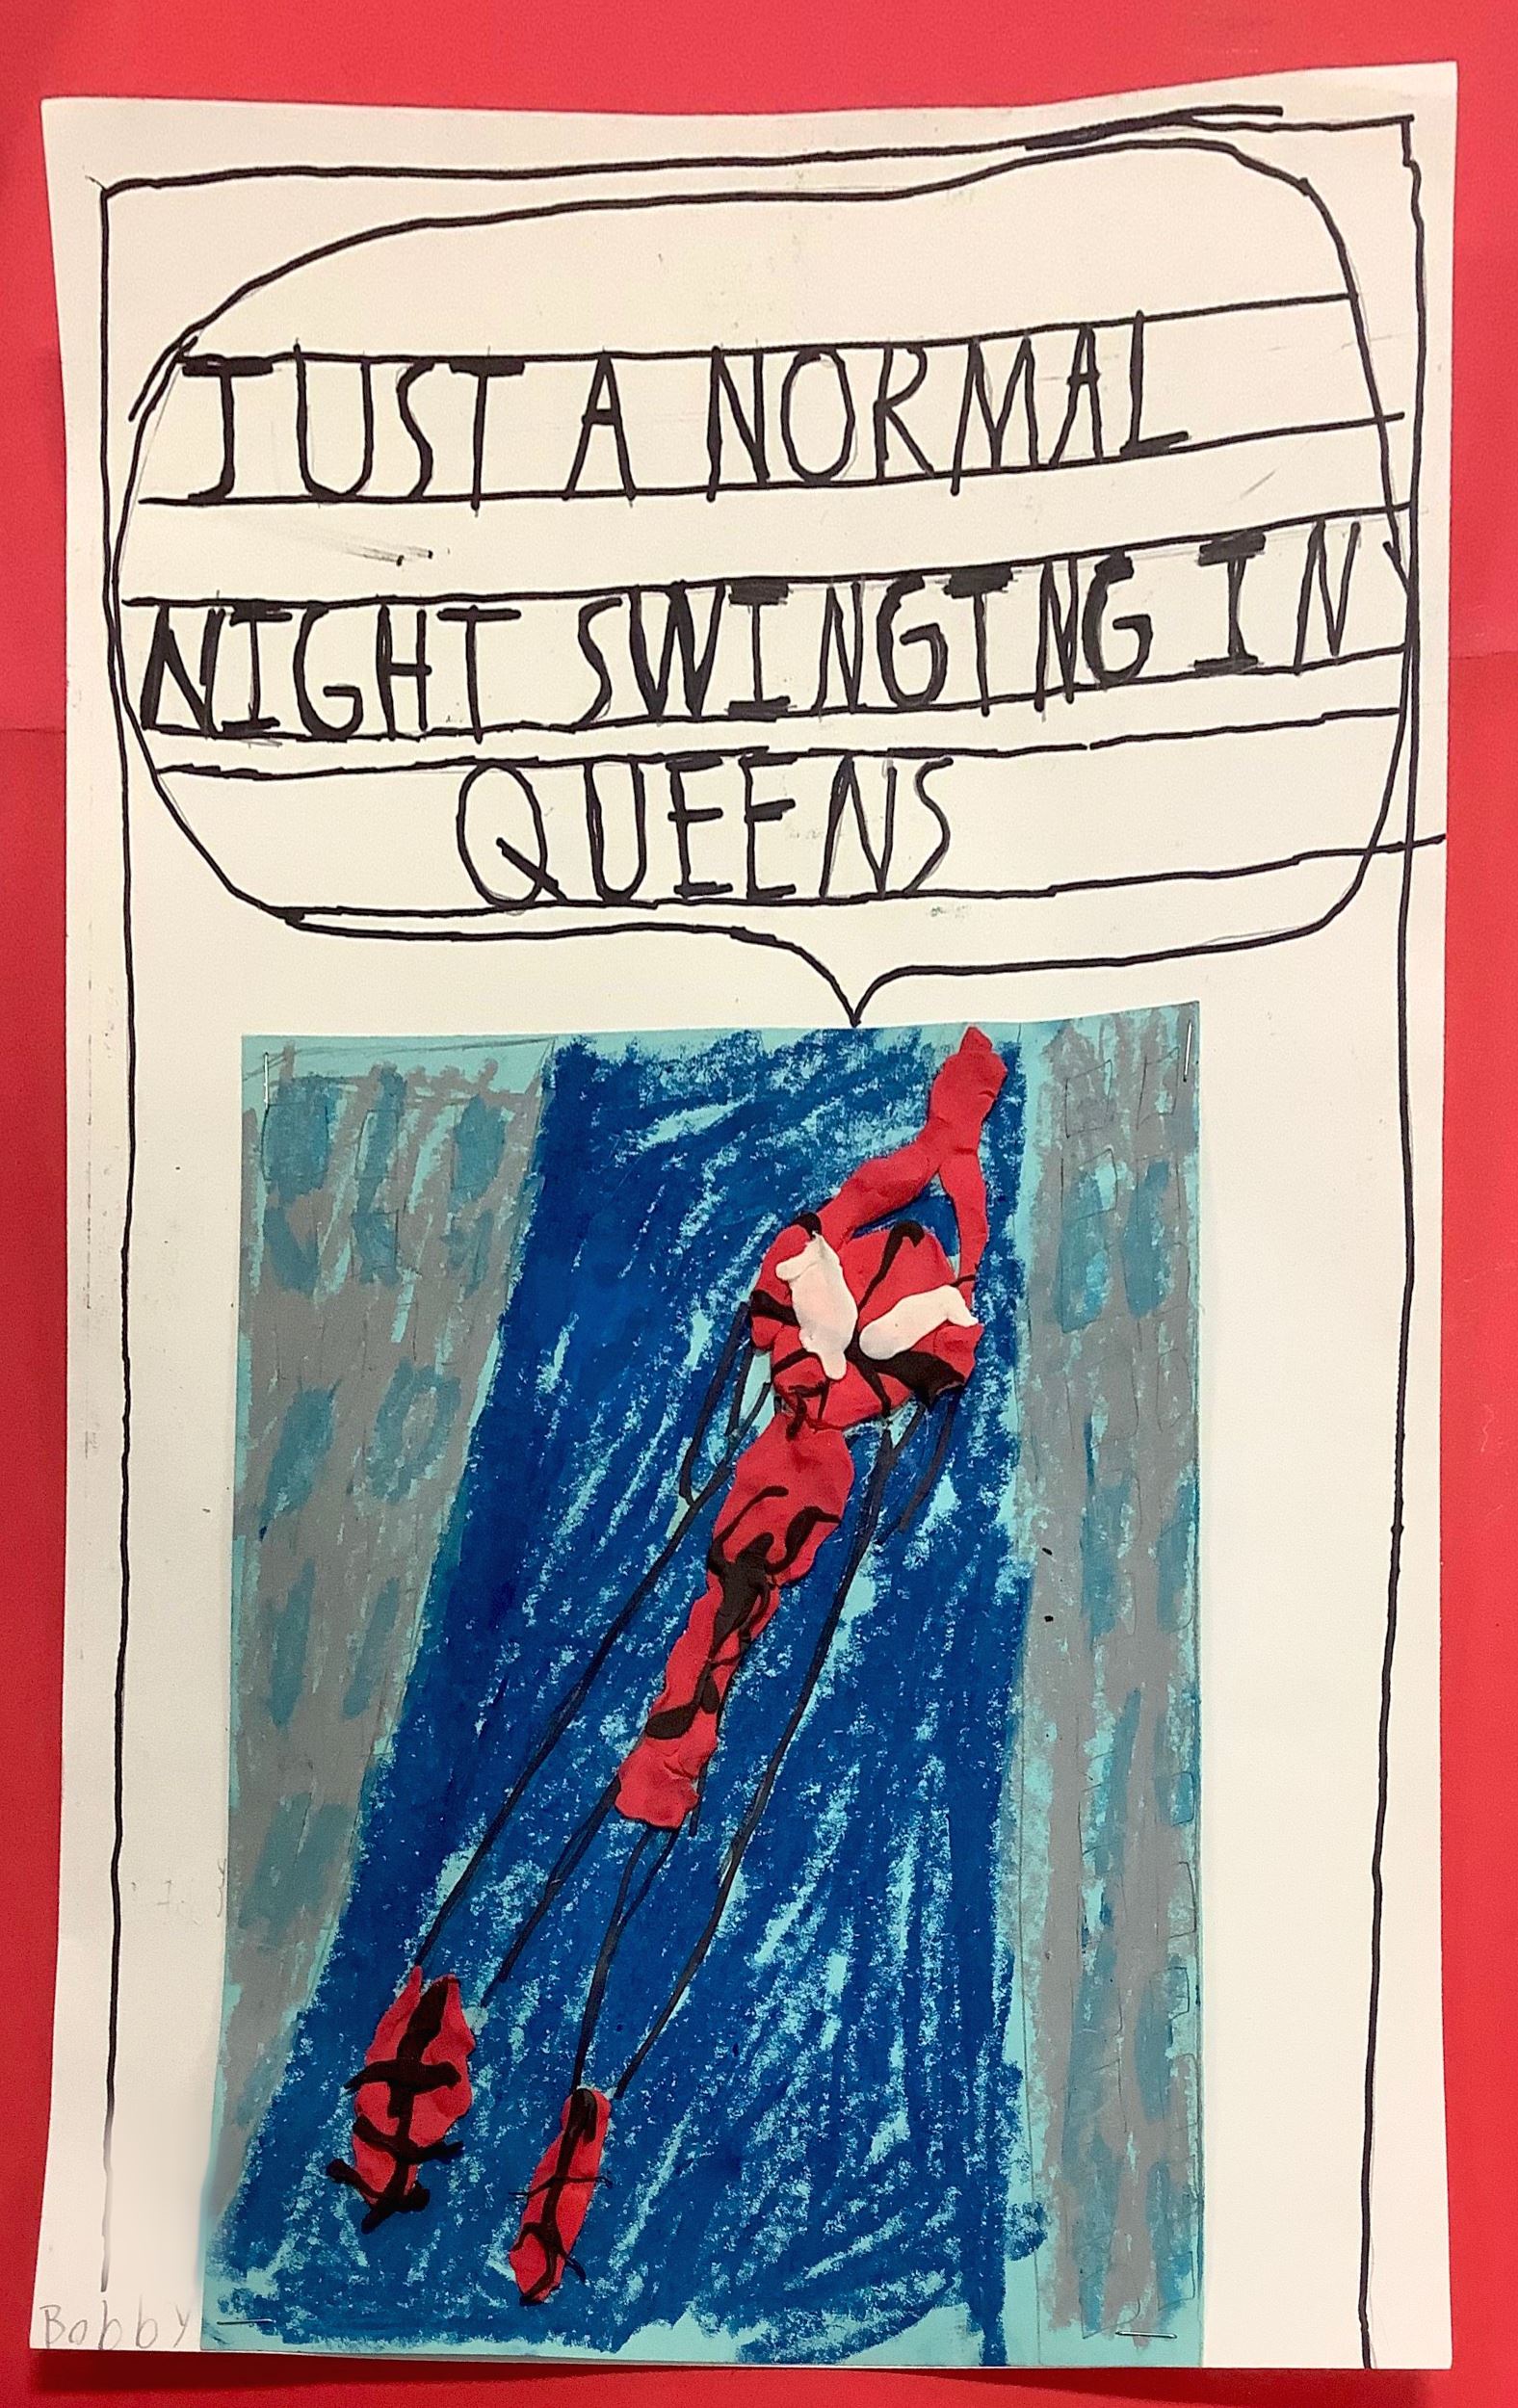 JUST A NORMAL
NIGHT SWINGING IN
QUEENS
Bobby